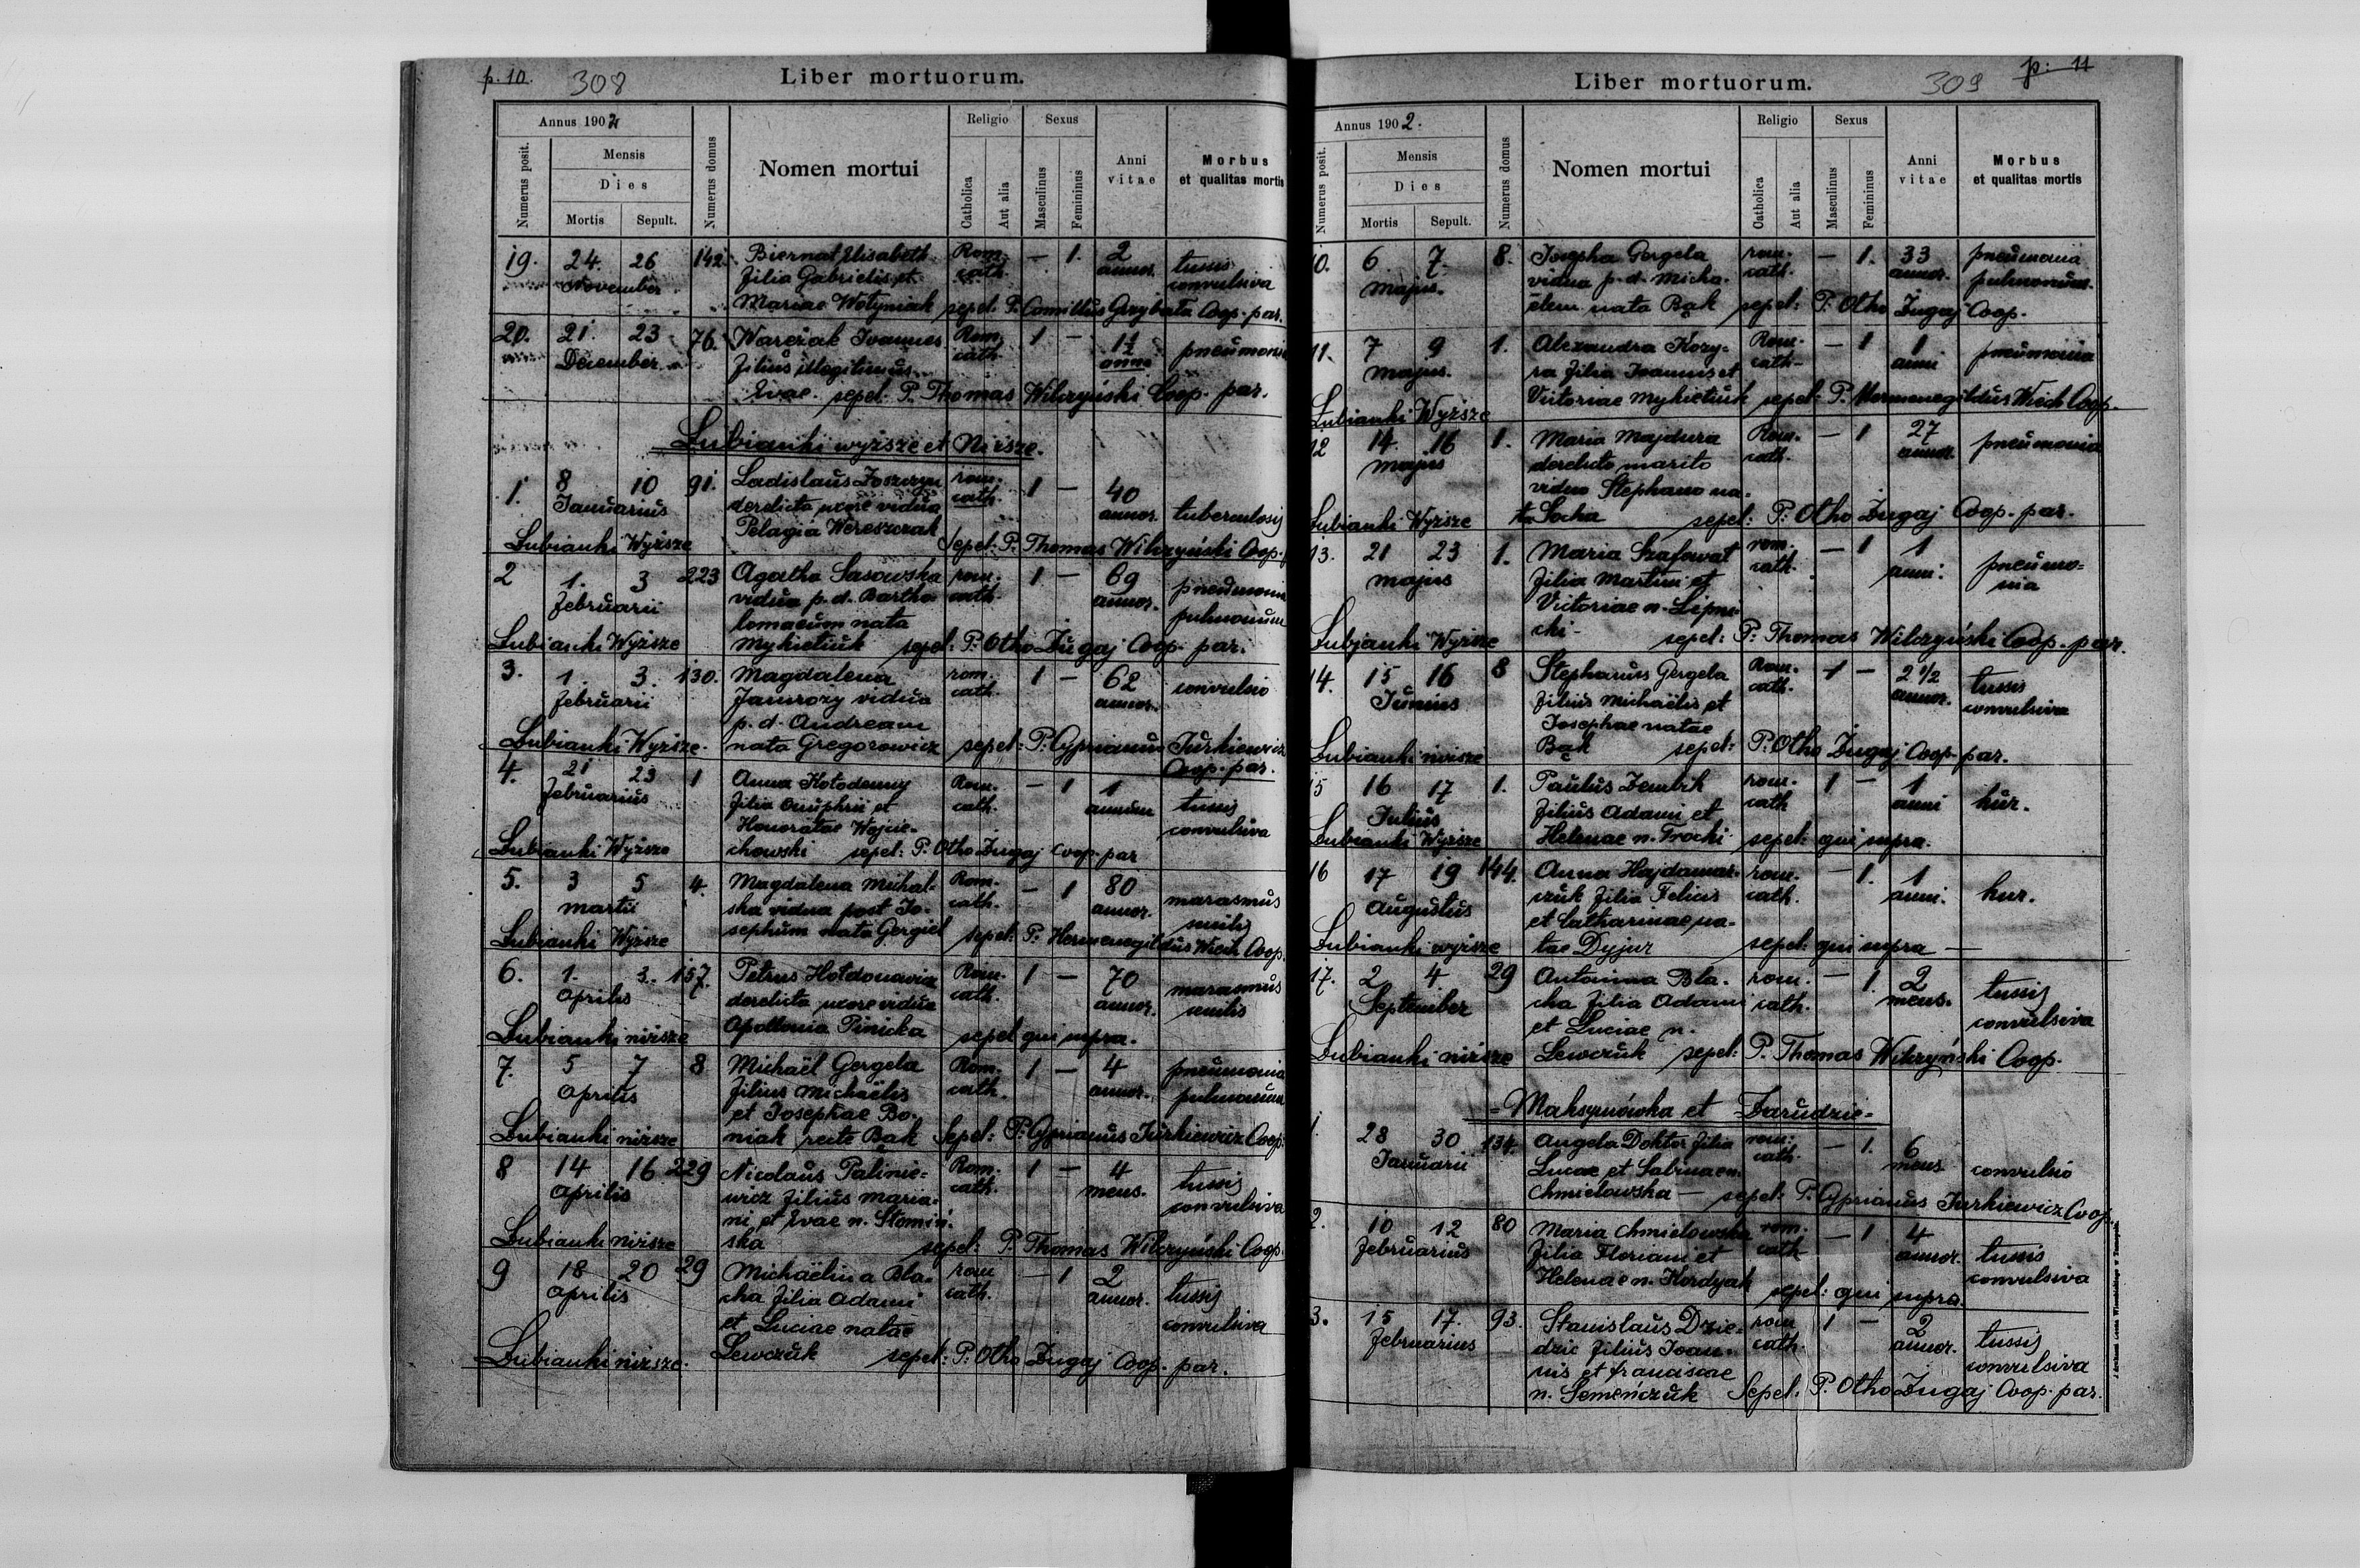 p. 10. 308 Liber mortuorum.
Annus 1902
Numerus posit.
Mensis
Dies
Mortis Sepult.
Numerus domus
Nomen mortui
Religio
Catholica Aut alia
Sexus
Masculinus Femininus
Anni vitae
Morbus
et qualitas mortis
19. 24. 26 142. Biernat Elisabeth Rom. — 1. 2 tussis
November filia Gabrielis et cath. annor. convulsiva
Mariae Wołyniak sepel: P. Camillus Grzybała Coop. par.
20. 21. 23 76. Warciak Ioannes Rom. 1 — 1½ pneumonia
December filius illegitimus cath. anni
Evae. sepel. P. Thomas Wilczyński Coop. par.
Łubianki wyższe et Niższe.
1. 8 10 91. Ladislaus Joszczyn rom. 1 — 40
Januarius derelicta uxore vidua cath. annor. tuberculosis
Pelagia Wereszczak
Łubianki Wyższe Sepel: P. Thomas Wilczyński Coop.
2 1. 3 223 Agatha Sasowska rom. 1 — 69 pneumonia
Februarii vidua p. d. Bartho- cath. annor. pulmonum
lomaeum nata
Łubianki Wyższe Mykietiuk sepel: P. Otho Żugaj Coop. par.
3. 1. 3. 130. Magdalena rom. 1 — 62 convulsio
Februarii Jamrozy vidua cath. annor.
p. d. Andream
Łubianki Wyższe. nata Gregorowicz sepel: P. Cyprianus Jurkiewicz
Coop. par.
4. 21 23 1 Anna Kołodenny Rom. — 1 1 tussis
Februarius filia Onuphrii et cath. annum convulsiva
Honoratae Wojcie-
Łubianki Wyższe chowski sepel: P. Otho Żugaj Coop. par
5. 3 5 4. Magdalena Michal- Rom. — 1 80 marasmus
martii ska vidua post Jo- cath. annor. senilis
Łubianki Wyższe sephum nata Gergiel sepel: P. Hermenegildus Wioch Coop.
6. 1. 3. 157. Petrus Hołdonowicz Rom. 1 — 70 marasmus
Aprilis derelicta uxore vidua cath. annor. senilis
Łubianki niższe Apollonia Pinicka sepel qui supra.
7. 5 7 8 Michaël Gergela Rom. 1 — 4 pneumonia
Aprilis filius Michaëlis cath. annor. pulmonum
et Josephae Bo-
Łubianki niższe niak recte Bąk Sepel: P. Cyprianus Jurkiewicz Coop.
8 14 16 229 Nicolaus Palinie- Rom. 1 — 4 tussis
Aprilis wicz filius Maria- cath. mens. convulsiva
ni et Evae n. Słomiń-
Łubianki niższe ska sepel: P. Thomas Wilczyński Coop.
9 18 20 29 Michaëlina Bla- rom — 1 2 tussis
Aprilis cha filia Adami cath. annor. convulsiva
et Luciae natae
Łubianki niższe. Lewczuk sepel: P. Otho Żugaj Coop. par.
Liber mortuorum. 309 p. 11
Annus 1902.
Numerus posit.
Mensis
Dies
Mortis Sepult.
Numerus domus
Nomen mortui
Religio
Catholica Aut alia
Sexus
Masculinus Femininus
Anni vitae
Morbus
et qualitas mortis
10. 6 7 8. Josepha Gergela rom. — 1. 33 pneumonia
Majus. vidua p. d. Micha- cath. annor. pulmonum.
ëlem nata Bąk sepel: P. Otho Żugaj Coop.
11. 7 9 1. Alexandra Kozy- Rom. — 1 1 pneumonia
majus. ra filia Ioannis et cath. anni
Łubianki Wyższe Victoriae Mykietiuk sepel: P. Hermenegildus Wioch Coop.
12 14. 16 1. Maria Majdura Rom. — 1 27 pneumonia
majus derelicto marito cath. annor.
viduo Stephano na-
Łubianki Wyższe ta Socha sepel: P. Otho Żugaj Coop. par.
13. 21 23 1. Maria Szafowat rom. — 1 1 pneumo-
majus filia Martini et cath. anni. nia
Victoriae n. Lipni-
Łubjanki Wyższe cki- sepel: P. Thomas Wilczyński Coop. par.
14. 15 16 8 Stephanus Gergela Rom. 1 — 2 1/2 tussis
Junius filius Michaëlis et cath. annor. convulsiva
Josephae natae
Łubianki niższe Bąk sepel: P. Otho Żugaj Coop. par.
15 16 17 1. Paulus Dembik rom. 1 — 1 hur.
Julius filius Adami et cath anni
Łubianki Wyższe Helenae n. Trocki sepel: qui supra.
16 17 19 144. Anna Hajdamar- rom. — 1. 1 hur.
Augustus czuk filia Felicis cath. anni.
et Catharinae na-
Łubianki wyższe tae Dyjur sepel: qui supra —
17. 2 4 29 Antonina Bla- rom. — 1. 2 tussis
September cha filia Adami cath. mens. convulsiva
et Luciae n.
Łubianki niższe Lewczuk sepel: P. Thomas Wilczyński Coop.
- Maksymówka et Zarudzie -
1. 28 30 134. Angela Doktor filia rom. — 1. 6
Januarii Lucae et Sabinae n. cath. mens convulsio
Chmielowska — sepel: P. Cyprianus Jurkiewicz Coop.
2. 10 12 80 Maria Chmielowska rom. — 1 4 tussis
Februarius filia Floriani et cath annor. convulsiva
Helenae n. Kordyak sepel: qui supra.
3. 15 17. 93. Stanislaus Dzie- rom 1 — 2 tussis
Februarius dzic filius Joan- cath. annor. convulsiva
nis et Franciscae
n. Semeńczuk Sepel: P. Otho Żugaj Coop. par.